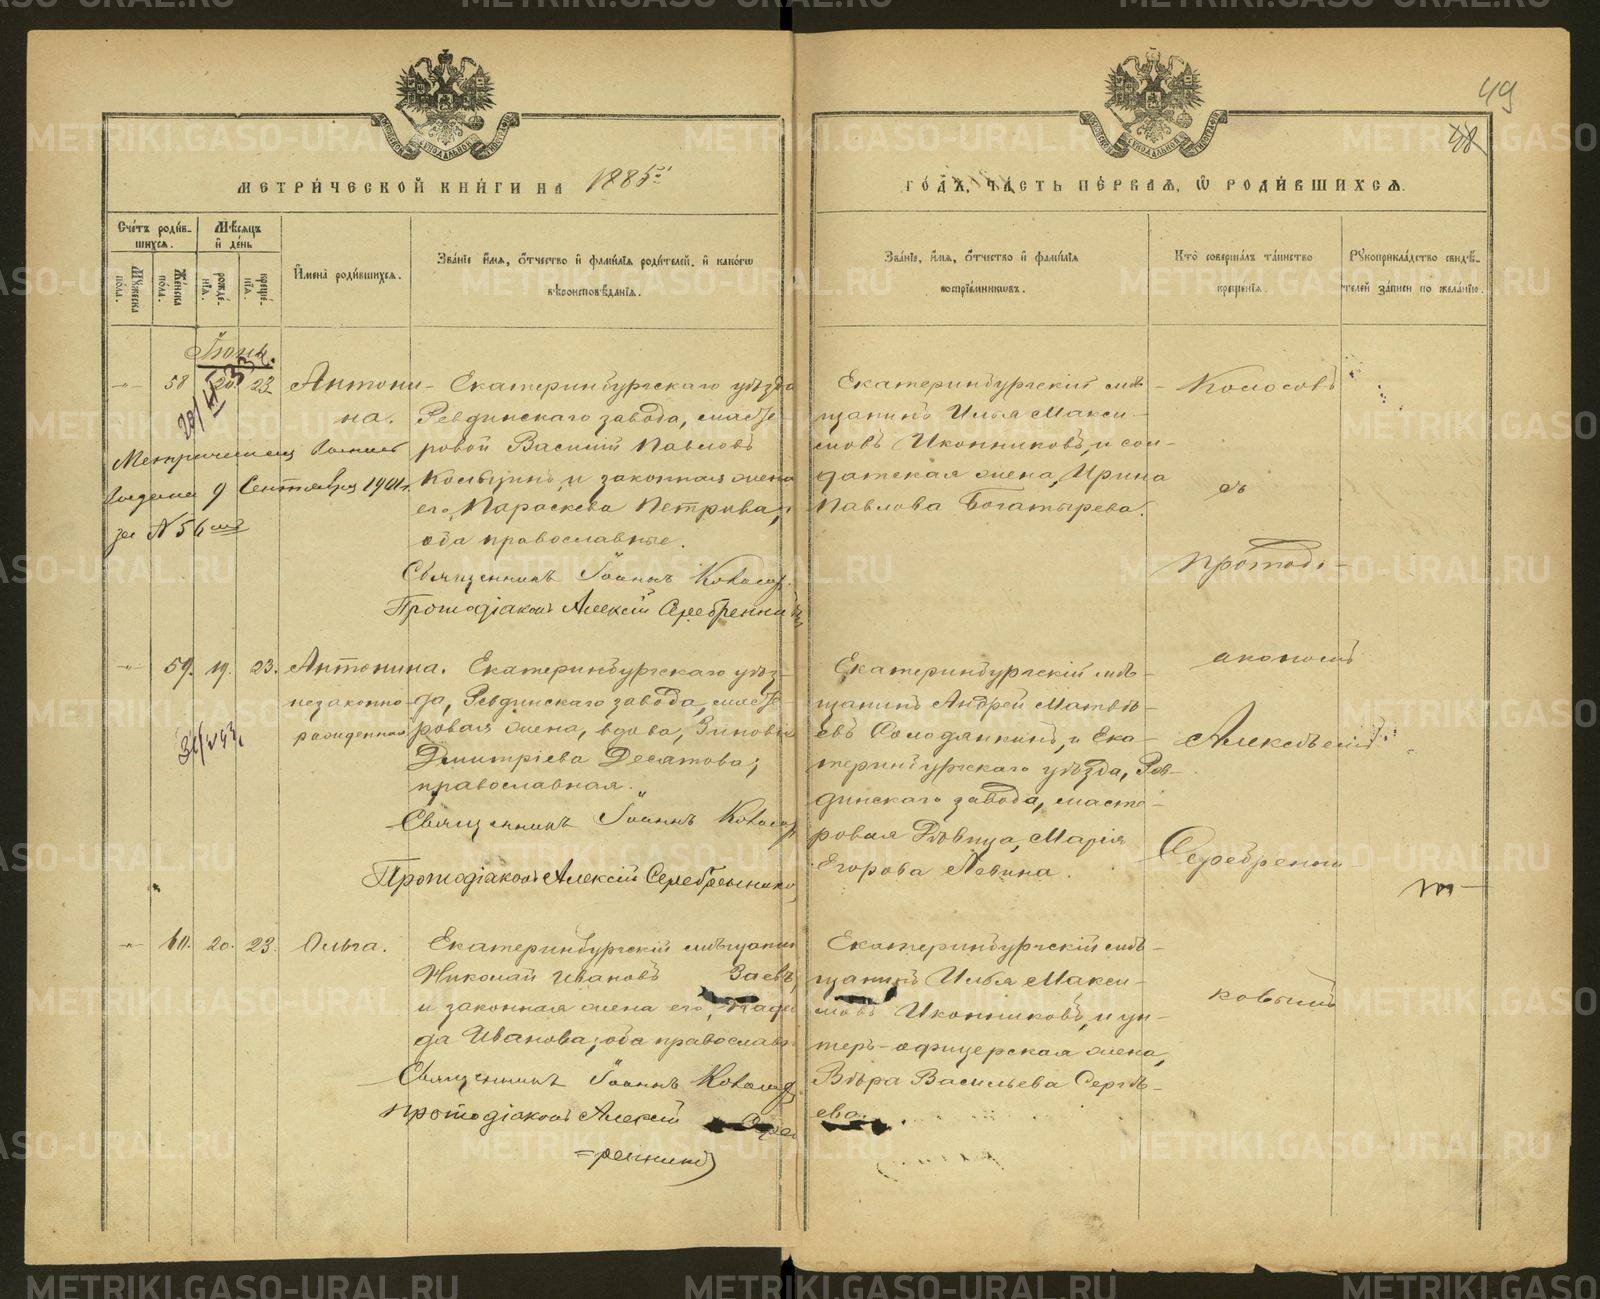 49
48
МЕТРИ́ЧЕСКОЙ КНИ́ГИ НА 1885го
ГО́ДЪ, ЧА́СТЬ ПЕ́РВАЯ, Ѡ РОДИ́ВШИХСЯ.
Сче́тъ роди́в-
шихся.
Мѣ́сяцъ
и де́нь
Му́жеска по́ла.
Же́нска по́ла.
рожде́нїя.
креще́нїя.
Имена̀ роди́вшихся.
Зва́нїе и́мя, о́тчество и фами́лїя роди́телей, и како́гѡ
вѣроисповѣ́данїя.
Зва́нїе, и́мя, о́тчество и фами́лїя
воспрїе́мниковъ.
Кто̀ соверша́лъ та́инство
креще́нїя.
Рукоприкла́дство свидѣ́-
телей за́писи по жела́нїю.
Іюнь.
-"- 58 20. 23 Антони-
на.
Екатеринбургскаго уѣзда
Ревдинскаго завода, масте-
ровой Василій Павловъ
и законная жена
его, Параскева Петрова,
оба православные.
Священникъ Іоаннъ Колосовъ.
Протодіаконъ Алексій Серебренниковъ
9 Сентября 1901 г.
за № 56
Екатеринбургскій мѣ-
щанинъ Илья Макси-
мовъ Иконниковъ, и сол-
датская жена, Ирина
Павлова Богатырева.
Колосовъ
съ
протоді-
акономъ
Алексѣемъ
Серебренни-
ковымъ
-"- 59. 19. 23. Антонина.
незаконно-
рожденная
Екатеринбургскаго уѣз-
да, Ревдинскаго завода, масте-
ровая жена, вдова, Зиновія
Дмитріева Десятова;
православная.
Священникъ Іоаннъ Колосовъ
Протодіаконъ Алексій Серебренниковъ
Екатеринбургскій мѣ-
щанинъ Андрей Матвѣ-
евъ Солодянкинъ, и Ека-
теринбургскаго уѣзда, Рев-
динскаго завода, масте-
ровая дѣвица, Марія
Егорова Левина.
-"- 60. 20. 23. Ольга.
Екатеринбургскій мѣщанин
Николай Ивановъ Заевъ,
и законная жена его, Надеж-
да Иванова; оба православн.
Священникъ Іоаннъ Колосовъ
протодіаконъ Алексій Сереб
=ренниковъ
Екатеринбургскій мѣ-
щанинъ Илья Макси-
мовъ Иконниковъ, и ун-
теръ-офицерская жена,
Вѣра Васильева Сергѣ-
ева.
METRIKI.GASO-URAL.RU